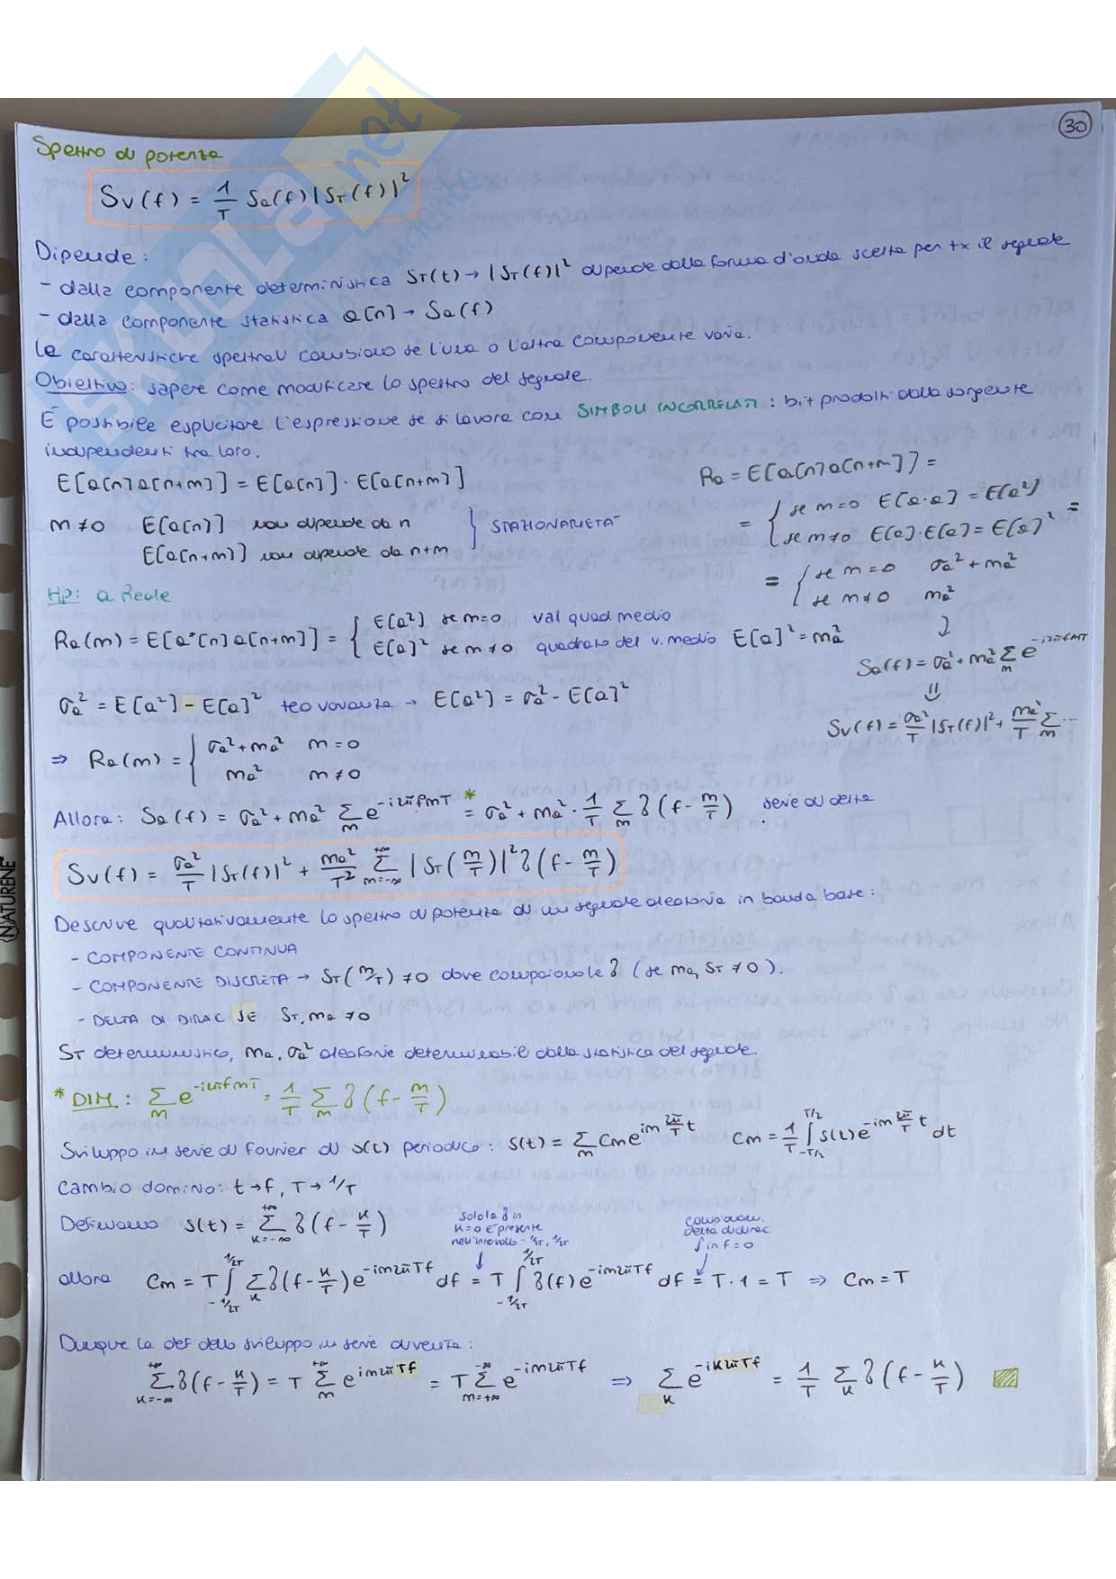 30
Spettro di potenza
Sv(f) = 1/T Sa(f) |ST(f)|²
Dipende:
- dalla componente deterministica ST(t) → |ST(f)|² dipende dalla forma d'onda scelta per tx il segnale
- dalla componente statistica a[n] → Sa(f)
Le caratteristiche spettrali cambiano se l'una o l'altra componente varia.
Obiettivo: sapere come modificare lo spettro del segnale.
È possibile esplicitare l'espressione se si lavora con SIMBOLI INCORRELATI: bit prodotti dalla sorgente
indipendenti tra loro.
E[a[n]a[n+m]] = E[a[n]] · E[a[n+m]]
m ≠ 0 E[a[n]] non dipende da n
E[a[n+m]] non dipende da n+m } STAZIONARIETA'
Ra = E[a[n]a[n+m]] =
= { se m=0 E[a·a] = E[a²]
se m≠0 E[a]·E[a] = E[a]² =
= { se m=0 σa²+ma²
se m≠0 ma²
Sa(f) = σa² + ma² Σm e^-i2πfmT
⇓
Sv(f) = σa²/T |ST(f)|² + ma²/T Σm ...
HP: a Reale
Ra(m) = E[a*[n]a[n+m]] = { E[a²] se m=0 val quad medio
E[a]² se m≠0 quadrato del v. medio E[a]² = ma²
σa² = E[a²] - E[a]² teo varianza → E[a²] = σa² - E[a]²
⇒ Ra(m) = { σa²+ma² m=0
ma² m≠0
Allora: Sa(f) = σa² + ma² Σm e^-i2πfmT =* σa² + ma² · 1/T Σm δ(f - m/T) serie di delta
Sv(f) = σa²/T |ST(f)|² + ma²/T² Σ(m=-∞)^(+∞) |ST(m/T)|² δ(f - m/T)
Descrive qualitativamente lo spettro di potenza di un segnale aleatorio in banda base:
- COMPONENTE CONTINUA
- COMPONENTE DISCRETA → ST(m/T) ≠ 0 dove compaiono le δ (se ma, ST ≠ 0).
- DELTA DI DIRAC SE ST, ma ≠ 0
ST deterministico, ma, σa² aleatorie determinabili dalla statistica del segnale.
* DIM: Σm e^-i2πfmT = 1/T Σm δ(f - m/T)
Sviluppo in serie di Fourier di s(t) periodico: s(t) = Σm Cm e^(im 2π/T t) Cm = 1/T ∫(-T/2)^(T/2) s(t) e^(-im 2π/T t) dt
Cambio dominio: t→f, T→1/T
Definiamo s(t) = Σ(k=-∞)^(+∞) δ(f - k/T)
solo la δ in
k=0 è presente
nell'intervallo -1/2T, 1/2T
delta di dirac
∫ in f=0
allora Cm = T ∫(-1/2T)^(1/2T) Σk δ(f - k/T) e^(-im2πTf) df = T ∫(-1/2T)^(1/2T) δ(f) e^(-im2πTf) df = T · 1 = T ⇒ Cm = T
Dunque la def dello sviluppo in serie diventa:
Σ(k=-∞)^(+∞) δ(f - k/T) = T Σm^(+∞) e^(im2πTf) = T Σ(m=+∞)^(-∞) e^(-im2πTf) ⇒ Σk e^(-ik2πTf) = 1/T Σk δ(f - k/T)
NATURENE
SKUOLA.net